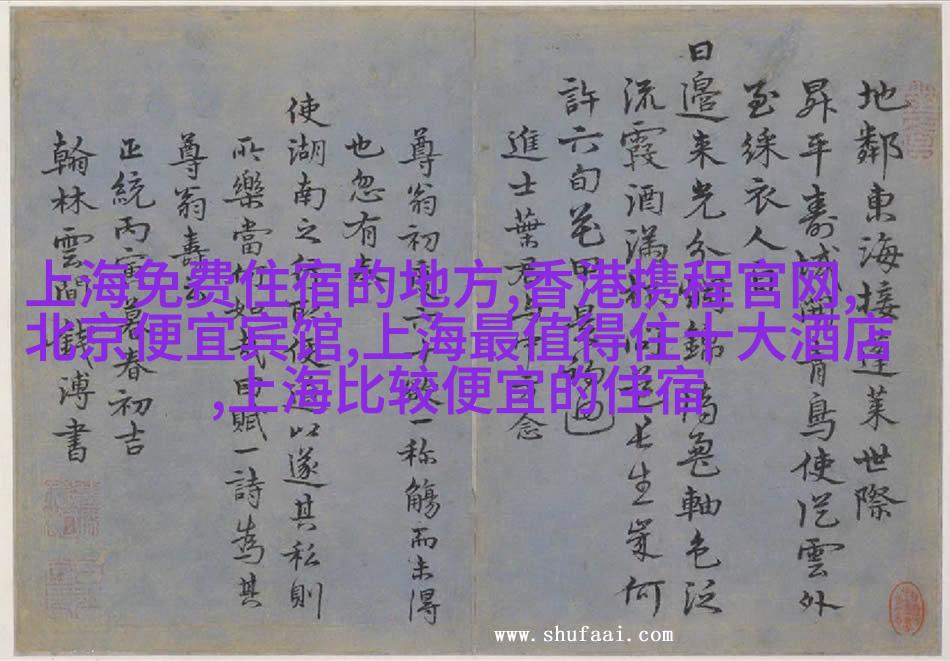 地鄰東海接蓬萊世際
昇平壽域開青鳥使從雲外
至綵衣人自
日邊來光分錦鸞軸色泛
流霞酒滿長生歲何
許六旬花甲
進士葉君念
尊翁初度六十一稱觴而未得
也忽有
使湖南之行取便道以遂其私則
所樂當何如哉申賦一詩為其
尊翁壽云
正統丙寅暮春初吉
翰林雲間錢溥書
上海免费住宿的地方,香港携程官网,
北京便宜宾馆,上海最值得住十大酒店
,上海比较便宜的住宿
www.shufaai.com